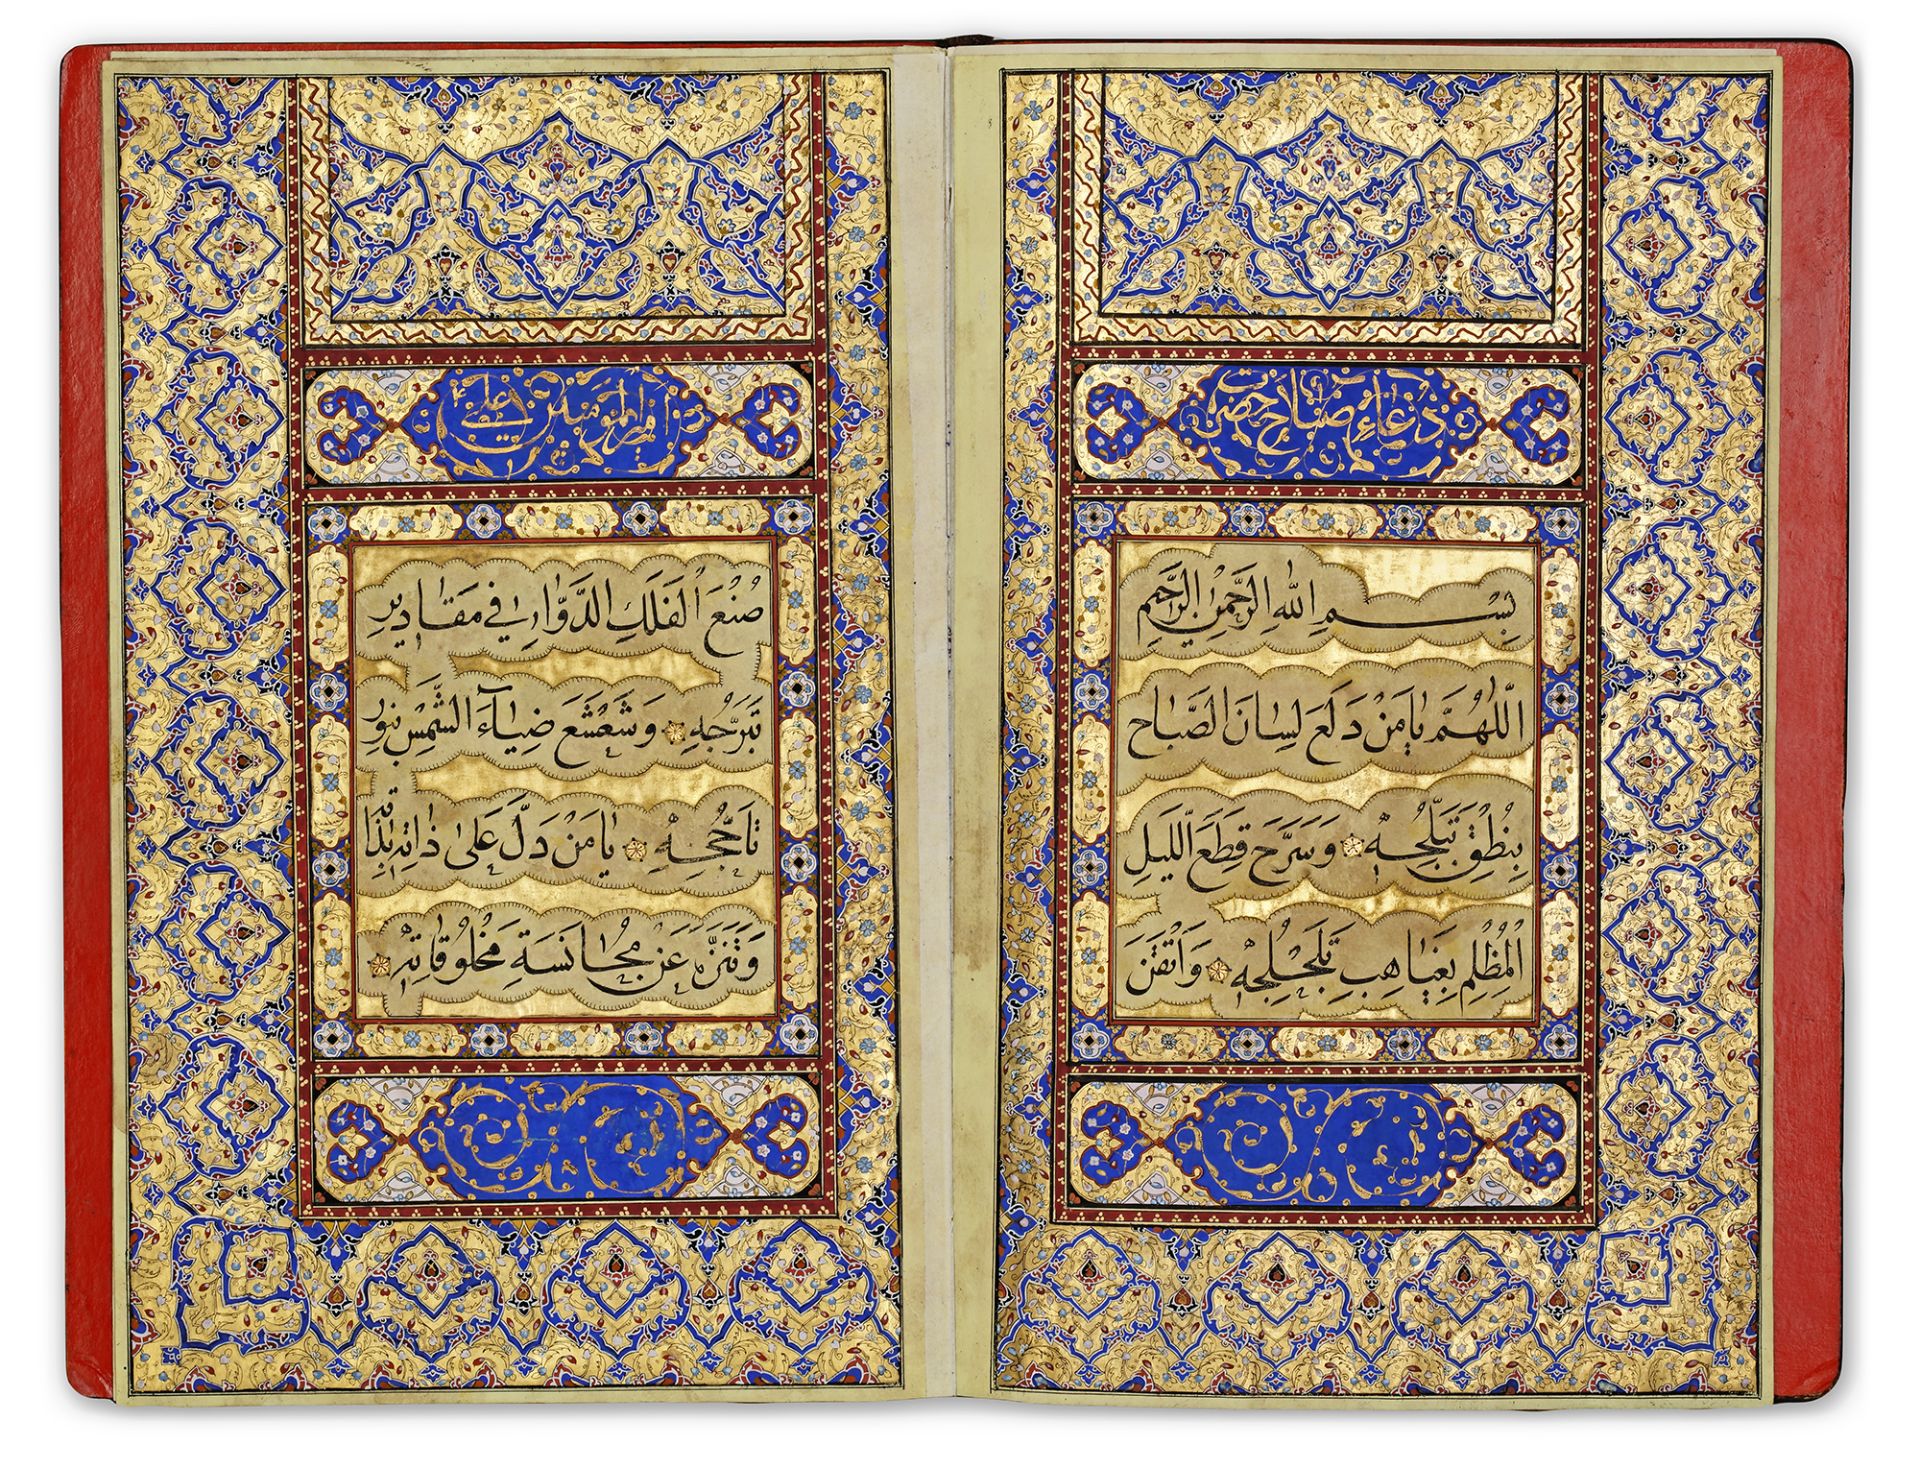 دُعَاءِ صَبَاح حَضرت
بِسْمِ اللهِ الرَّحْمٰنِ الرَّحِيمِ
اَللّٰهُمَّ يَا مَنْ دَلَعَ لِسَانَ الصَّبَاحِ
بِنُطْقِ تَبَلُّجِهِ وَسَرَّحَ قِطَعَ اللَّيْلِ
الْمُظْلِمِ بِغَيَاهِبِ تَلَجْلُجِهِ وَاَتْقَنَ
اميرالمؤمنين على
صُنْعَ الْفَلَكِ الدَّوَّارِ فِي مَقَادِيرِ
تَبَرُّجِهِ وَشَعْشَعَ ضِيَآءَ الشَّمْسِ بِنُورِ
تَاَجُّجِهِ يَا مَنْ دَلَّ عَلىٰ ذَاتِهِ بِذَاتِهِ
وَتَنَزَّهَ عَنْ مُجَانَسَةِ مَخْلُوقَاتِهِ